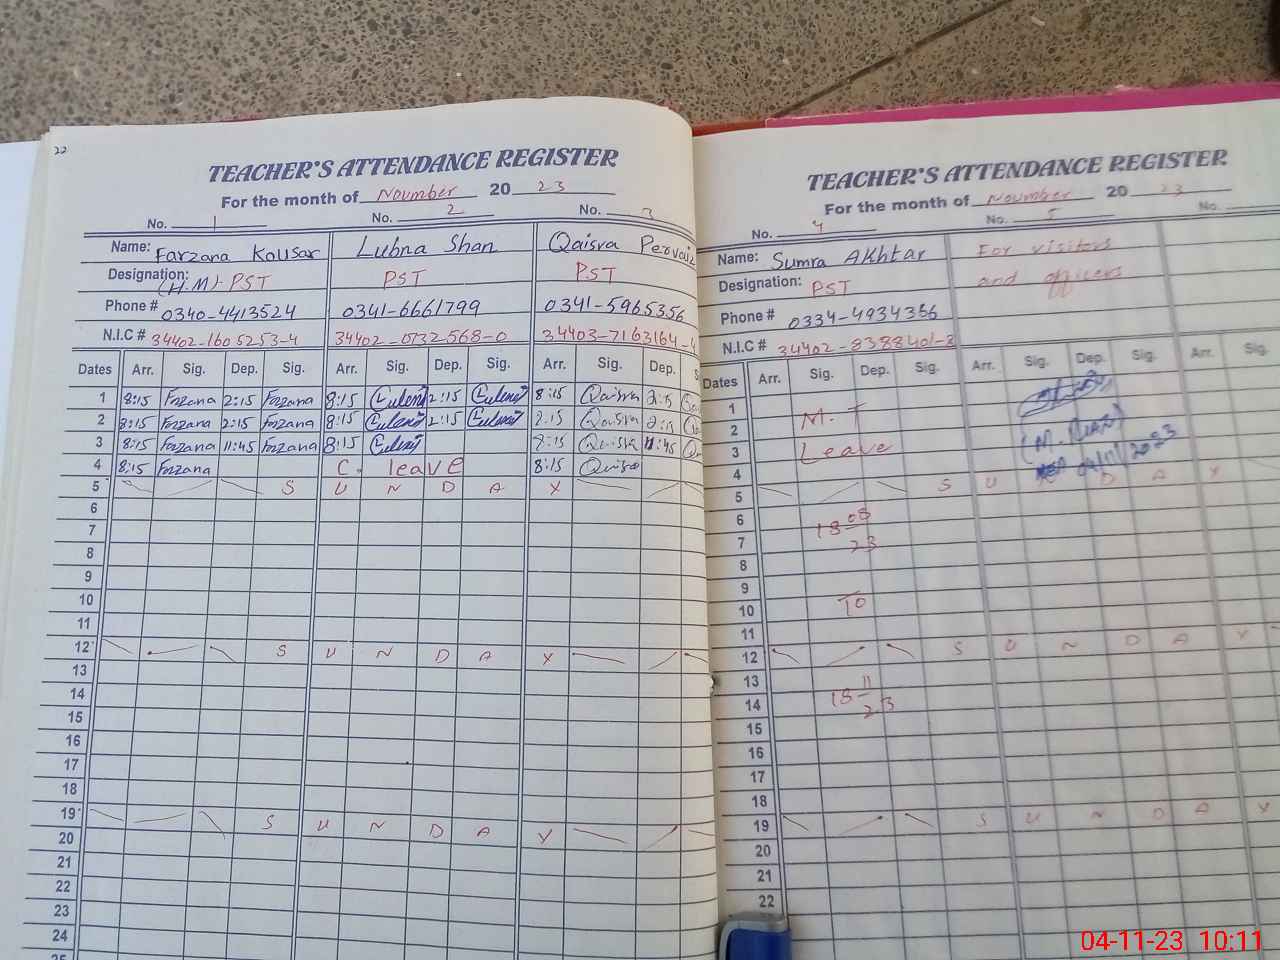 22
TEACHER'S ATTENDANCE REGISTER
For the month of Noumber 20 23
No. 1 No. 2 No. 3
Name: Farzana Kousar Lubna Shan Qaisra Pervaiz
Designation: (H.M) PST PST PST
Phone # 0340-4413524 0341-6661799 0341-5965356
N.I.C # 34402-1605253-4 34402-0732568-0 34403-7163164-
Dates Arr. Sig. Dep. Sig. Arr. Sig. Dep. Sig. Arr. Sig. Dep. S
1 8:15 Farzana 2:15 Farzana 8:15 2:15 8:15 Qaisra 2:15
2 8:15 Farzana 2:15 Farzana 8:15 2:15 8:15 Qaisra 2:15
3 8:15 Farzana 11:45 Farzana 8:15 8:15 Qaisra 11:45
4 8:15 Farzana C. leave 8:15 Qaisra
5 S U N D A Y
6
7
8
9
10
11
12 S U N D A Y
13
14
15
16
17
18
19 S U N D A Y
20
21
22
23
24
25
TEACHER'S ATTENDANCE REGISTER
For the month of Noumber 20 23
No. 4 No. 5 No.
Name: Sumra Akhtar For visitors
Designation: PST and officers
Phone # 0334-4934356
N.I.C # 34402-8388401-3
Dates Arr. Sig. Dep. Sig. Arr. Sig. Dep. Sig. Arr. Sig.
1
2 M.T
3 Leave
4 04/11/2023
5 S U N D A Y
6 18 08
7 23
8
9
10 To
11
12 S U N D A Y
13 11
14 18 23
15
16
17
18
19 S U N D A Y
20
21
22
04-11-23 10:11